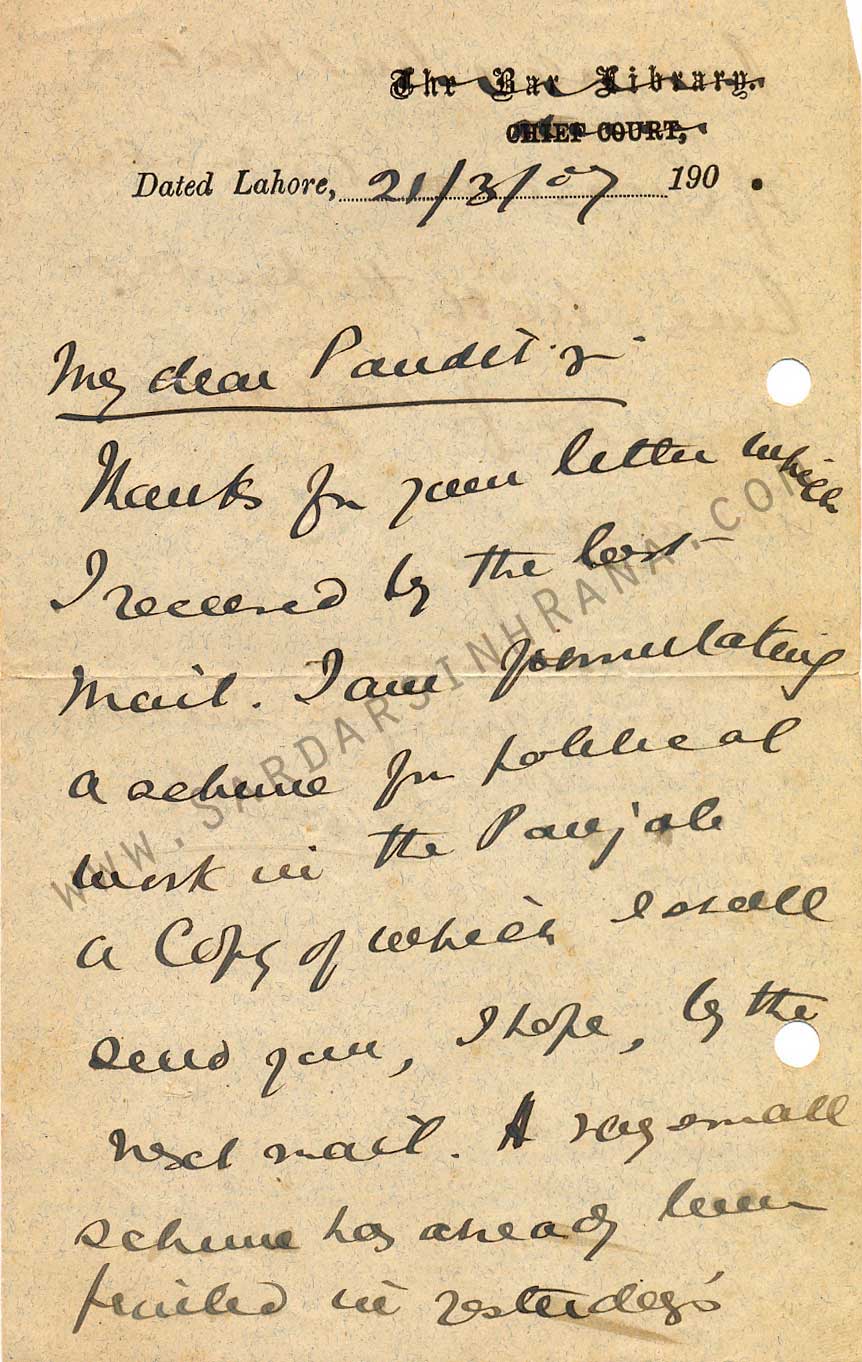 The Bar Library.
CHIEF COURT,
Dated Lahore, 21/3/07 190 .
My dear Pandit-ji
Thanks for your letter which
I received by the last
mail. I am formulating
a scheme for political
work in the Panjab
a Copy of which I shall
send you, I hope, by the
next mail. A very small
scheme has already been
printed in yesterday's
WWW.SARDARSINHRANA.COM